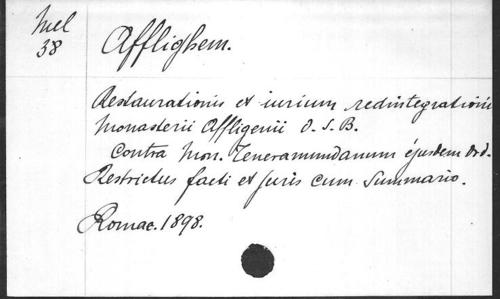 Mel
38
Afflighem.
Restaurationis et iurium redintegrationis
Monasterii Affligenii O.S.B.
Contra Mon. Teneramundanum ejusdem Ord.
Restrictus facti et juris cum Summario.
Romae. 1898.